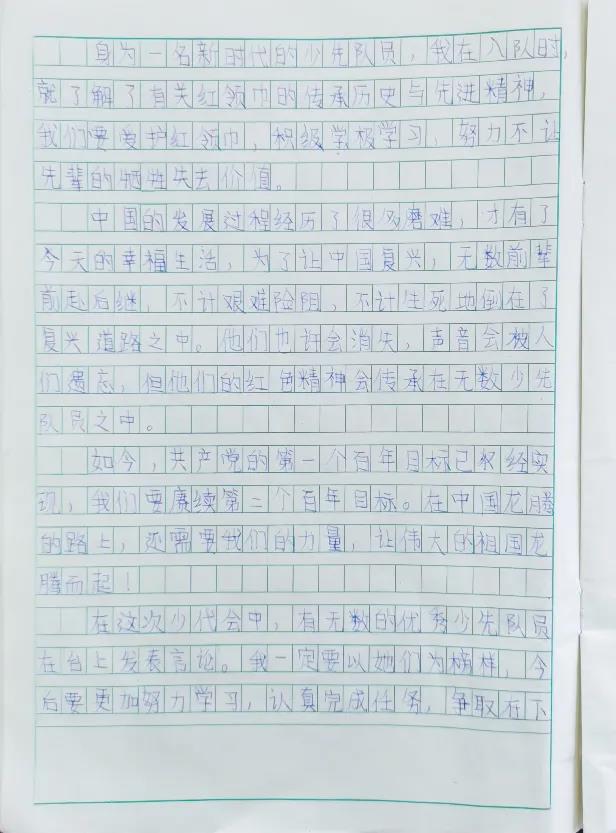 身为一名新时代的少先队员，我在入队时，
就了解了有关红领巾的传承历史与先进精神，
我们要爱护红领巾，积级学极学习，努力不让
先辈的牺牲失去价值。
中国的发展过程经历了很多磨难，才有了
今天的幸福生活，为了让中国复兴，无数前辈
前赴后继，不计艰难险阻，不计生死地倒在了
复兴道路之中。他们也许会消失，声音会被人
们遗忘，但他们的红色精神会传承在无数少先
队员之中。
如今，共产党的第一个百年目标已经实
现，我们要赓续第二个百年目标。在中国龙腾
的路上，还需要我们的力量，让伟大的祖国龙
腾而起！
在这次少代会中，有无数的优秀少先队员
在台上发表言论。我一定要以她们为榜样，今
后要更加努力学习，认真完成任务，争取在下